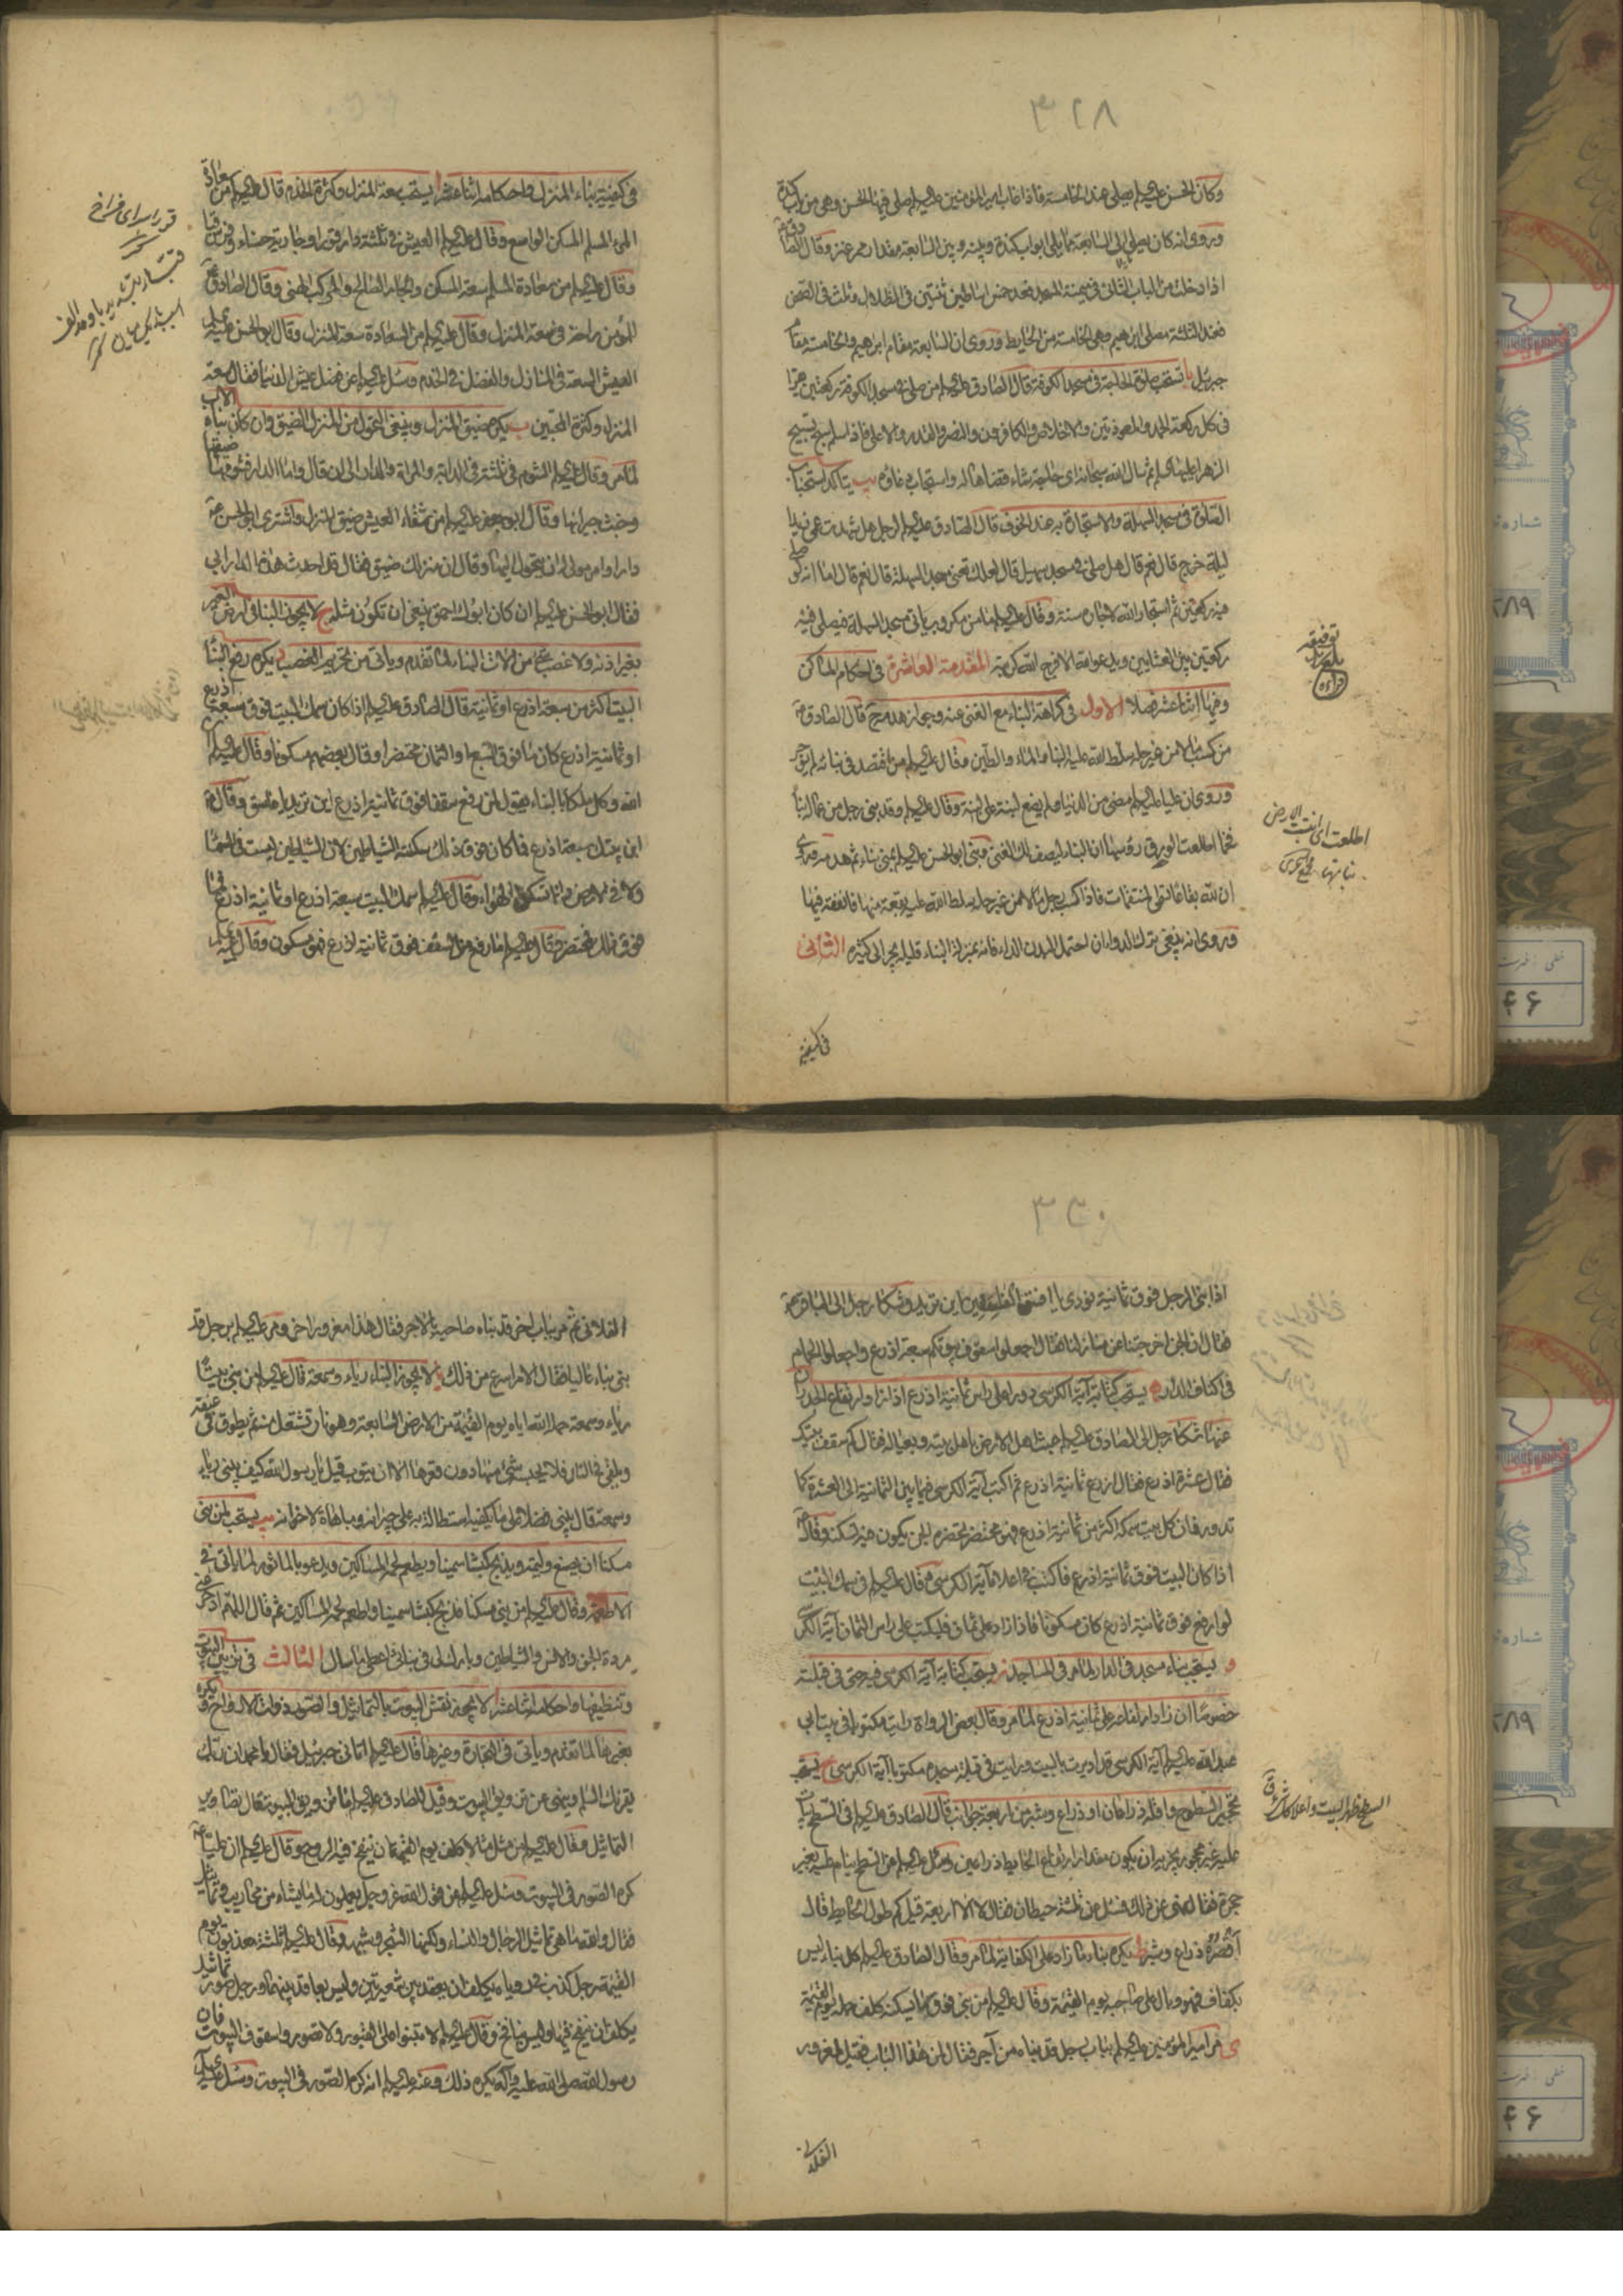 ٣٢٨
وكان الحسن عليه السلام يصلي عند الخامسة فاذا غاب امير المؤمنين عليه السلام صلى فيها الحسن وهي من باب كندة
وروى انه كان يصلي الى السابعة مما يلي ابواب كندة وبينه وبين السابعة مقدار ممر عنز وقال الصادق
اذا دخلت من الباب الثاني في ميمنة المسجد فعد خمس اساطين ثنتين في الظلال وثلث في الصحن
فعند الثالثة مصلى ابرهيم وهي الخامسة من الحايط وروى ان السابعة مقام ابرهيم والخامسة مقام
جبرئيل يا تستحب صلوة الحاجة في مسجد الكوفة قال الصادق عليه السلام من صلى في مسجد الكوفة ركعتين يقرأ
في كل ركعة الحمد والمعوذتين والاخلاص والكافرون والنصر والقدر والاعلى فاذا سلم سبح تسبيح
الزهرا عليها السلام ثم سأل الله سبحانه اى حاجة شاء قضاها له واستجاب دعاؤه يب يتأكد استحباب
الصلوة في مسجد السهلة والاستجارة به عند الخوف قال الصادق عليه السلام لرجل هل شهدت عمي زيدا
ليلة خرج قال نعم قال هل صلى في مسجد سهيل قال لعلك تعني مسجد السهلة قال نعم قال اما انه لو صلى
فيه ركعتين ثم استجار الله لاجاره سنة وقال عليه السلام ما من مكروب ياتي مسجد السهلة فيصلي فيه
ركعتين بين العشائين ويدعو الله الا فرج الله كربته المقدمة العاشرة في احكام المساكن
وفيها اثنا عشر فصلا الاول في كراهة البناء مع الغنى عنه وجواز هدمه ج قال الصادق
من كسب مالا من غير حله سلط الله عليه البناء والماء والطين وقال عليه السلام من اقتصد في بنائه لم يؤجر
وروى ان عليا عليه السلام مضى من الدنيا ولم يضع لبنة على لبنة وقال عليه السلام وقد بنى رجل من عماله بناء
فخما اطلعت الورق رؤسها ان البناء ليصف لك الغنى وبنى ابو الحسن عليه السلام بمنى بناء ثم هدمه وروى
ان لله بقاعا تسمى المنتقمات فاذا كسب رجل مالا من غير حله سلط الله عليه بقعة منها فانفقه فيها
وروى انه ينبغي ترك الدواء ان احتمل البدن الداء فانه بمنزلة البناء قليله يجر الى كثيره الثاني
في كيفية
اطلعت اى انبتت الارض
نباتها مجمع البحرين
في كيفية بناء المنزل واحكامه اثنا عشر ا يستحب سعة المنزل وكثرة الخدم قال عليه السلام من سعادة
المرء المسلم المسكن الواسع وقال عليه السلام العيش في ثلثة دار قوراء وجارية حسناء وفرس قباء
وقال عليه السلام من سعادة المسلم سعة المسكن والجار الصالح والمركب الهنى وقال الصادق
للمؤمن راحة في سعة المنزل وقال عليه السلام من السعادة سعة المنزل وقال ابو الحسن عليه السلام
العيش السعة في المنازل والفضل في الخدم وسئل عليه السلام عن فضل عيش الدنيا فقال سعة
المنزل وكثرة المحبين ب يكره ضيق المنزل وينبغي التحول من المنزل الضيق وان كان بناه الاب
لما مر وقال عليه السلام الشوم في ثلثة في الدابة والمرأة والدار الى ان قال واما الدار فشومها ضيقها
وخبث جيرانها وقال ابو جعفر عليه السلام من شقاء العيش ضيق المنزل واشترى ابو الحسن
دارا وامر مولى له ان يتحول اليها وقال ان منزلك ضيق فقال قد احدث هذه الدار ابي
فقال ابو الحسن عليه السلام ان كان ابوك احمق ينبغي ان تكون مثله ج لا يجوز البناء في ارض الغير
بغير اذنه ولا غصب شئ من آلات البناء لما تقدم وياتي من تحريم الغصب د يكره رفع البناء
البيت اكثر من سبعة اذرع او ثمانية قال الصادق عليه السلام اذا كان سمك البيت فوق سبعة اذرع
او ثمانية اذرع كان ما فوق السبع او الثمان محتضرا وقال بعضهم مسكونا وقال عليه السلام
ان لله وكل ملكا بالبناء يقول لمن رفع سقفا فوق ثمانية اذرع اين تريد يا فاسق وقال
ابن بيتك سبعة اذرع فما كان فوق ذلك سكنه الشياطين لان الشياطين ليست في السماء
ولا في الارض وانما تسكن الهواء وقال عليه السلام سمك البيت سبعة اذرع او ثمانية اذرع فما
فوق ذلك فمحتضر وقال عليه السلام ما رفع من السقف فوق ثمانية اذرع فهو مسكون وقال عليه السلام
قوراء سراى فراخ
٣٣٠
اذا بنى الرجل فوق ثمانية نودى يا افسق الفاسقين اين تريد وشكا رجل الى الباقر
فقال ان الجن اخرجتنا عن منازلنا فقال اجعلوا سقوف بيوتكم سبعة اذرع واجعلوا الحمام
في اكناف الدار ه يستحب كتابة آية الكرسي دورا على راس ثمانية اذرع اذا زاد ارتفاع الجدران
عنها شكا رجل الى الصادق عليه السلام عبث اهل الارض باهل بيته وبعياله فقال كم سقف بيتك
فقال عشرة اذرع فقال اذرع ثمانية اذرع ثم اكتب آية الكرسي فيما بين الثمانية الى العشرة كما
تدور فان كل بيت سمكه اكثر من ثمانية اذرع فهو محتضر تحضره الجن يكون فيه تسكنه وقال
اذا كان البيت فوق ثمانية اذرع فاكتب في اعلاه آية الكرسي وقال عليه السلام في سمك البيت
لو ارفع فوق ثمانية اذرع كان مسكونا فاذا زاد على ثمان فليكتب على راس الثمان آية الكرسي
و يستحب بناء مسجد في الدار لما مر في المساجد ز يستحب كتابة آية الكرسي في قبلته
خصوصا ان زاد ارتفاعه على ثمانية اذرع لما مر وقال بعض الرواة رايت مكتوبا في بيت ابي
عبد الله عليه السلام آية الكرسي قد اديرت بالبيت ورايت في قبلة مسجده مكتوبا آية الكرسي ح يستحب
تحجير السطوح واقله ذراعان او ذراع وشبر من اربعة جوانب قال الصادق عليه السلام في السطح يبات
عليه غير محجر يجزيه ان يكون مقدار ارتفاع الحايط ذراعين وسئل عليه السلام عن السطح ينام عليه بغير
حجرة فقال نهى عن ذلك فسئل عن ثلثة حيطان فقال لا الا اربعة قيل كم طول الحايط قال
اقصره ذراع وشبر ط يكره بناء ما زاد على الكفاية لما مر وقال الصادق عليه السلام كل بناء ليس
بكفاف فهو وبال على صاحبه يوم القيمة وقال عليه السلام من بنى فوق ما يسكنه كلف حمله يوم القيمة
ى مر امير المؤمنين عليه السلام بباب رجل قد بناه من آجر فقال لمن هذا الباب فقيل لمغرور
الفلاني
السطح ظهر البيت واعلا كل شئ ق
الفلاني ثم مر بباب آخر قد بناه صاحبه بالآجر فقال هذا مغرور آخر ومر عليه السلام برجل قد
بنى بناء عاليا فقال الامر اسرع من ذلك يا لا يجوز البناء رياء وسمعة قال عليه السلام من بنى بيتا
رياء وسمعة حمله الله اياه يوم القيمة من الارض السابعة وهو نار تشتعل منه ثم يطوق في عنقه
ويلقى في النار فلا يحبسه شئ منها دون قعرها الا ان يتوب قيل يا رسول الله كيف يبني رياء
وسمعة قال يبني فضلا على ما يكفيه استطالة به على جيرانه ومباهاة لاخوانه يب يستحب لمن بنى
مسكنا ان يصنع وليمة ويذبح كبشا سمينا ويطعم لحمه المساكين ويدعو بالماثور لما ياتي في
الاطعمة وقال عليه السلام من بنى مسكنا فذبح كبشا سمينا واطعم لحمه المساكين ثم قال اللهم ادحر عني
مردة الجن والانس والشياطين وبارك لي في بنائي اعطى ما سأل الثالث في تزيين البيوت
وتنظيفها واحكامه اثنا عشر ا لا يجوز نقش البيوت بالتماثيل والصور ذوات الارواح ويكره
بغيرها لما تقدم وياتي في التجارة وغيرها قال عليه السلام اتاني جبرئيل فقال يا محمد ان ربك
يقرئك السلم وينهى عن تزويق البيوت وقيل للصادق عليه السلام ما تزويق البيوت قال تصاوير
التماثيل وقال عليه السلام من مثل مثالا كلف يوم القيمة ان ينفخ فيه الروح وقال عليه السلام ان عليا
كره الصور في البيوت وسئل عليه السلام عن قول الله عز وجل يعملون له ما يشاء من محاريب وتماثيل
فقال والله ما هي تماثيل الرجال والنساء ولكنها الشجر وشبهه وقال عليه السلام ثلثة يعذبون يوم
القيمة رجل كذب في رؤياه يكلف ان يعقد بين شعيرتين وليس بعاقد بينهما ورجل صور تماثيل
يكلف ان ينفخ فيها وليس بنافخ وقال عليه السلام لا تبنوا على القبور ولا تصوروا سقوف البيوت فان
رسول الله صلى الله عليه وآله يكره ذلك وعنه عليه السلام انه كره الصور في البيوت وسئل عليه السلام